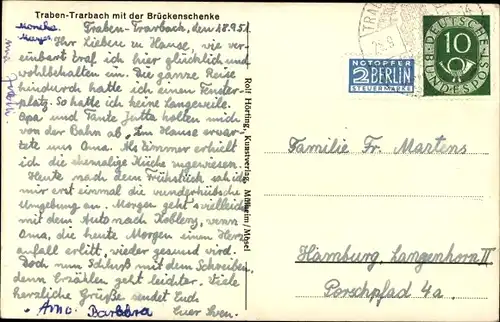 Traben-Trarbach mit der Brückenschenke
Traben-Trarbach, den 18.9.51.
Monika
Ihr Lieben zu Hause, wie ver-
einbart traf ich hier glücklich und
wohlbehalten ein. Die ganze Reise
hindurch hatte ich einen Fenster-
platz. So hatte ich keine Langeweile.
Opa und Tante Jutta holten mich
von der Bahn ab. Im Hause erwar-
tete uns Oma. Als Zimmer erhielt
ich die ehemalige Küche zugewiesen.
Heute nach dem Frühstück sah ich
mir erst einmal die wunderhübsche
Umgebung an. Morgen geht's vielleicht
mit dem Auto nach Koblenz, wenn
Oma, die heute Morgen einen Herz-
anfall erlitt, wieder gesund wird.
Doch nun Schluß mit dem Schreiben,
denn Erzählen geht leichter. Viele
herzliche Grüße sendet Euch
Euer Sven.
Arno Barbara
Rolf Hörting, Kunstverlag, Mülheim/Mosel
NOTOPFER
2 BERLIN
STEUERMARKE
DEUTSCHE
BUNDESPOST
10
Familie Fr. Martens
Hamburg, Langenhorn II
Porschpfad 4a.